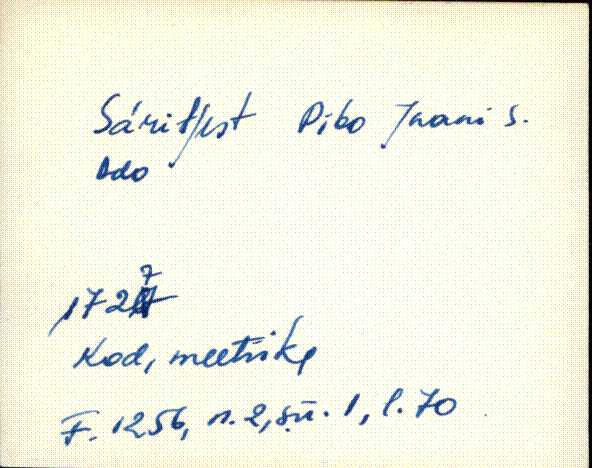 Särilt/ist Pibo Jaani s.
Ado
1727
Kod, meetrika
F. 1256, n. 2, sü. 1, l. 70